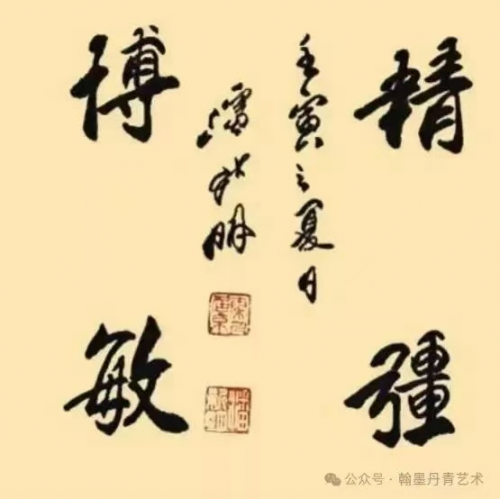 精彊
博敏
壬寅之夏日
公众号·翰墨丹青艺术